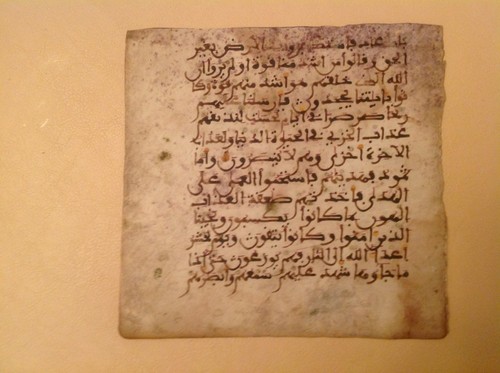 عاد فاستكبروا في الارض بغير
الحق وقالوا من اشد منا قوة اولم يروا ان
الله الذي خلقهم هو اشد منهم قوة وكا
نوا باياتنا يجحدون فارسلنا عليهم
ريحا صرصرا في ايام نحسات لنذيقهم
عذاب الخزي في الحيوة الدنيا ولعذاب
الاخرة اخزى وهم لا ينصرون واما
ثمود فهديناهم فاستحبوا العمى على
الهدى فاخذتهم صعقة العذاب
الهون بما كانوا يكسبون ونجينا
الذين امنوا وكانوا يتقون ويوم نحشر
اعداء الله الى النار فهم يوزعون حتى اذا
ما جاءوها شهد عليهم سمعهم وابصرهم